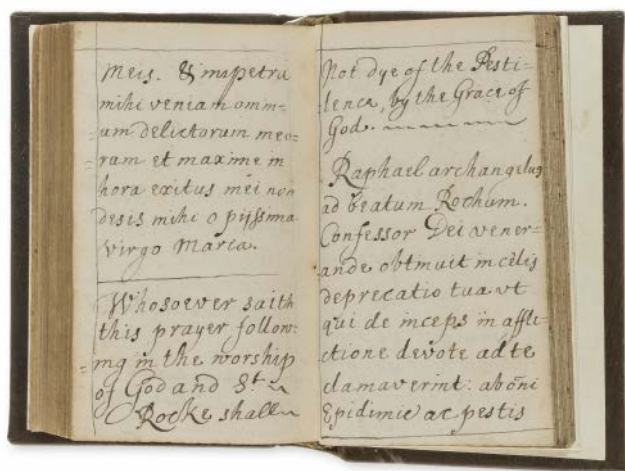 meis. & impetra
mihi veniam omni=
um delictorum meo=
=ram et maxime in
hora exitus mei non
desis mihi o pijssima
virgo Maria.
Whosoever saith
this prayer follow=
=ing in the worship
of God and St
Rocke shall
Not dye of the Pesti=
lence, by the Grace of
God.
Raphael archangelus
ad beatum Rochum.
Confessor Dei vener=
ande obtinuit in cêlis
deprecatio tua vt
qui de inceps in affli=
ctione devote ad te
clamaverint: ab oñi
Epidimie ac pestis